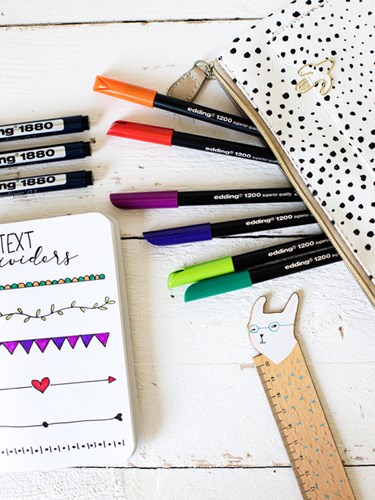 edding® 1200 superior quality
ng® 1880
edding® 1200 superior quality
ng® 1880
ng® 1880
edding® 1200 superior quality
edding® 1200
edding® 1200
edding® 1200
TEXT
viders